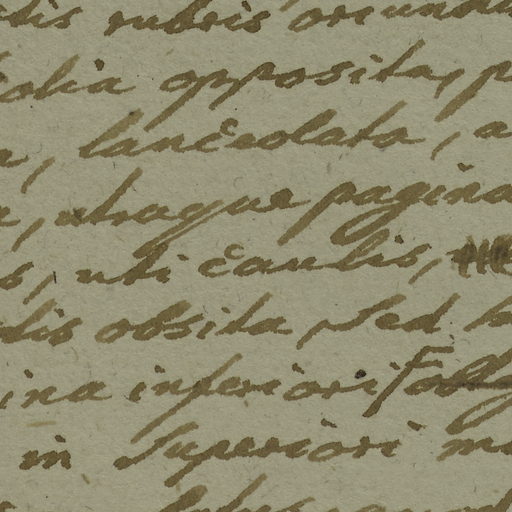 rubris oriund
folia opposita, p
a, lanceolata, a
a, utraque pagina
s, uti caulis,
dis obsita, sed
ina inferiori
in superiori m